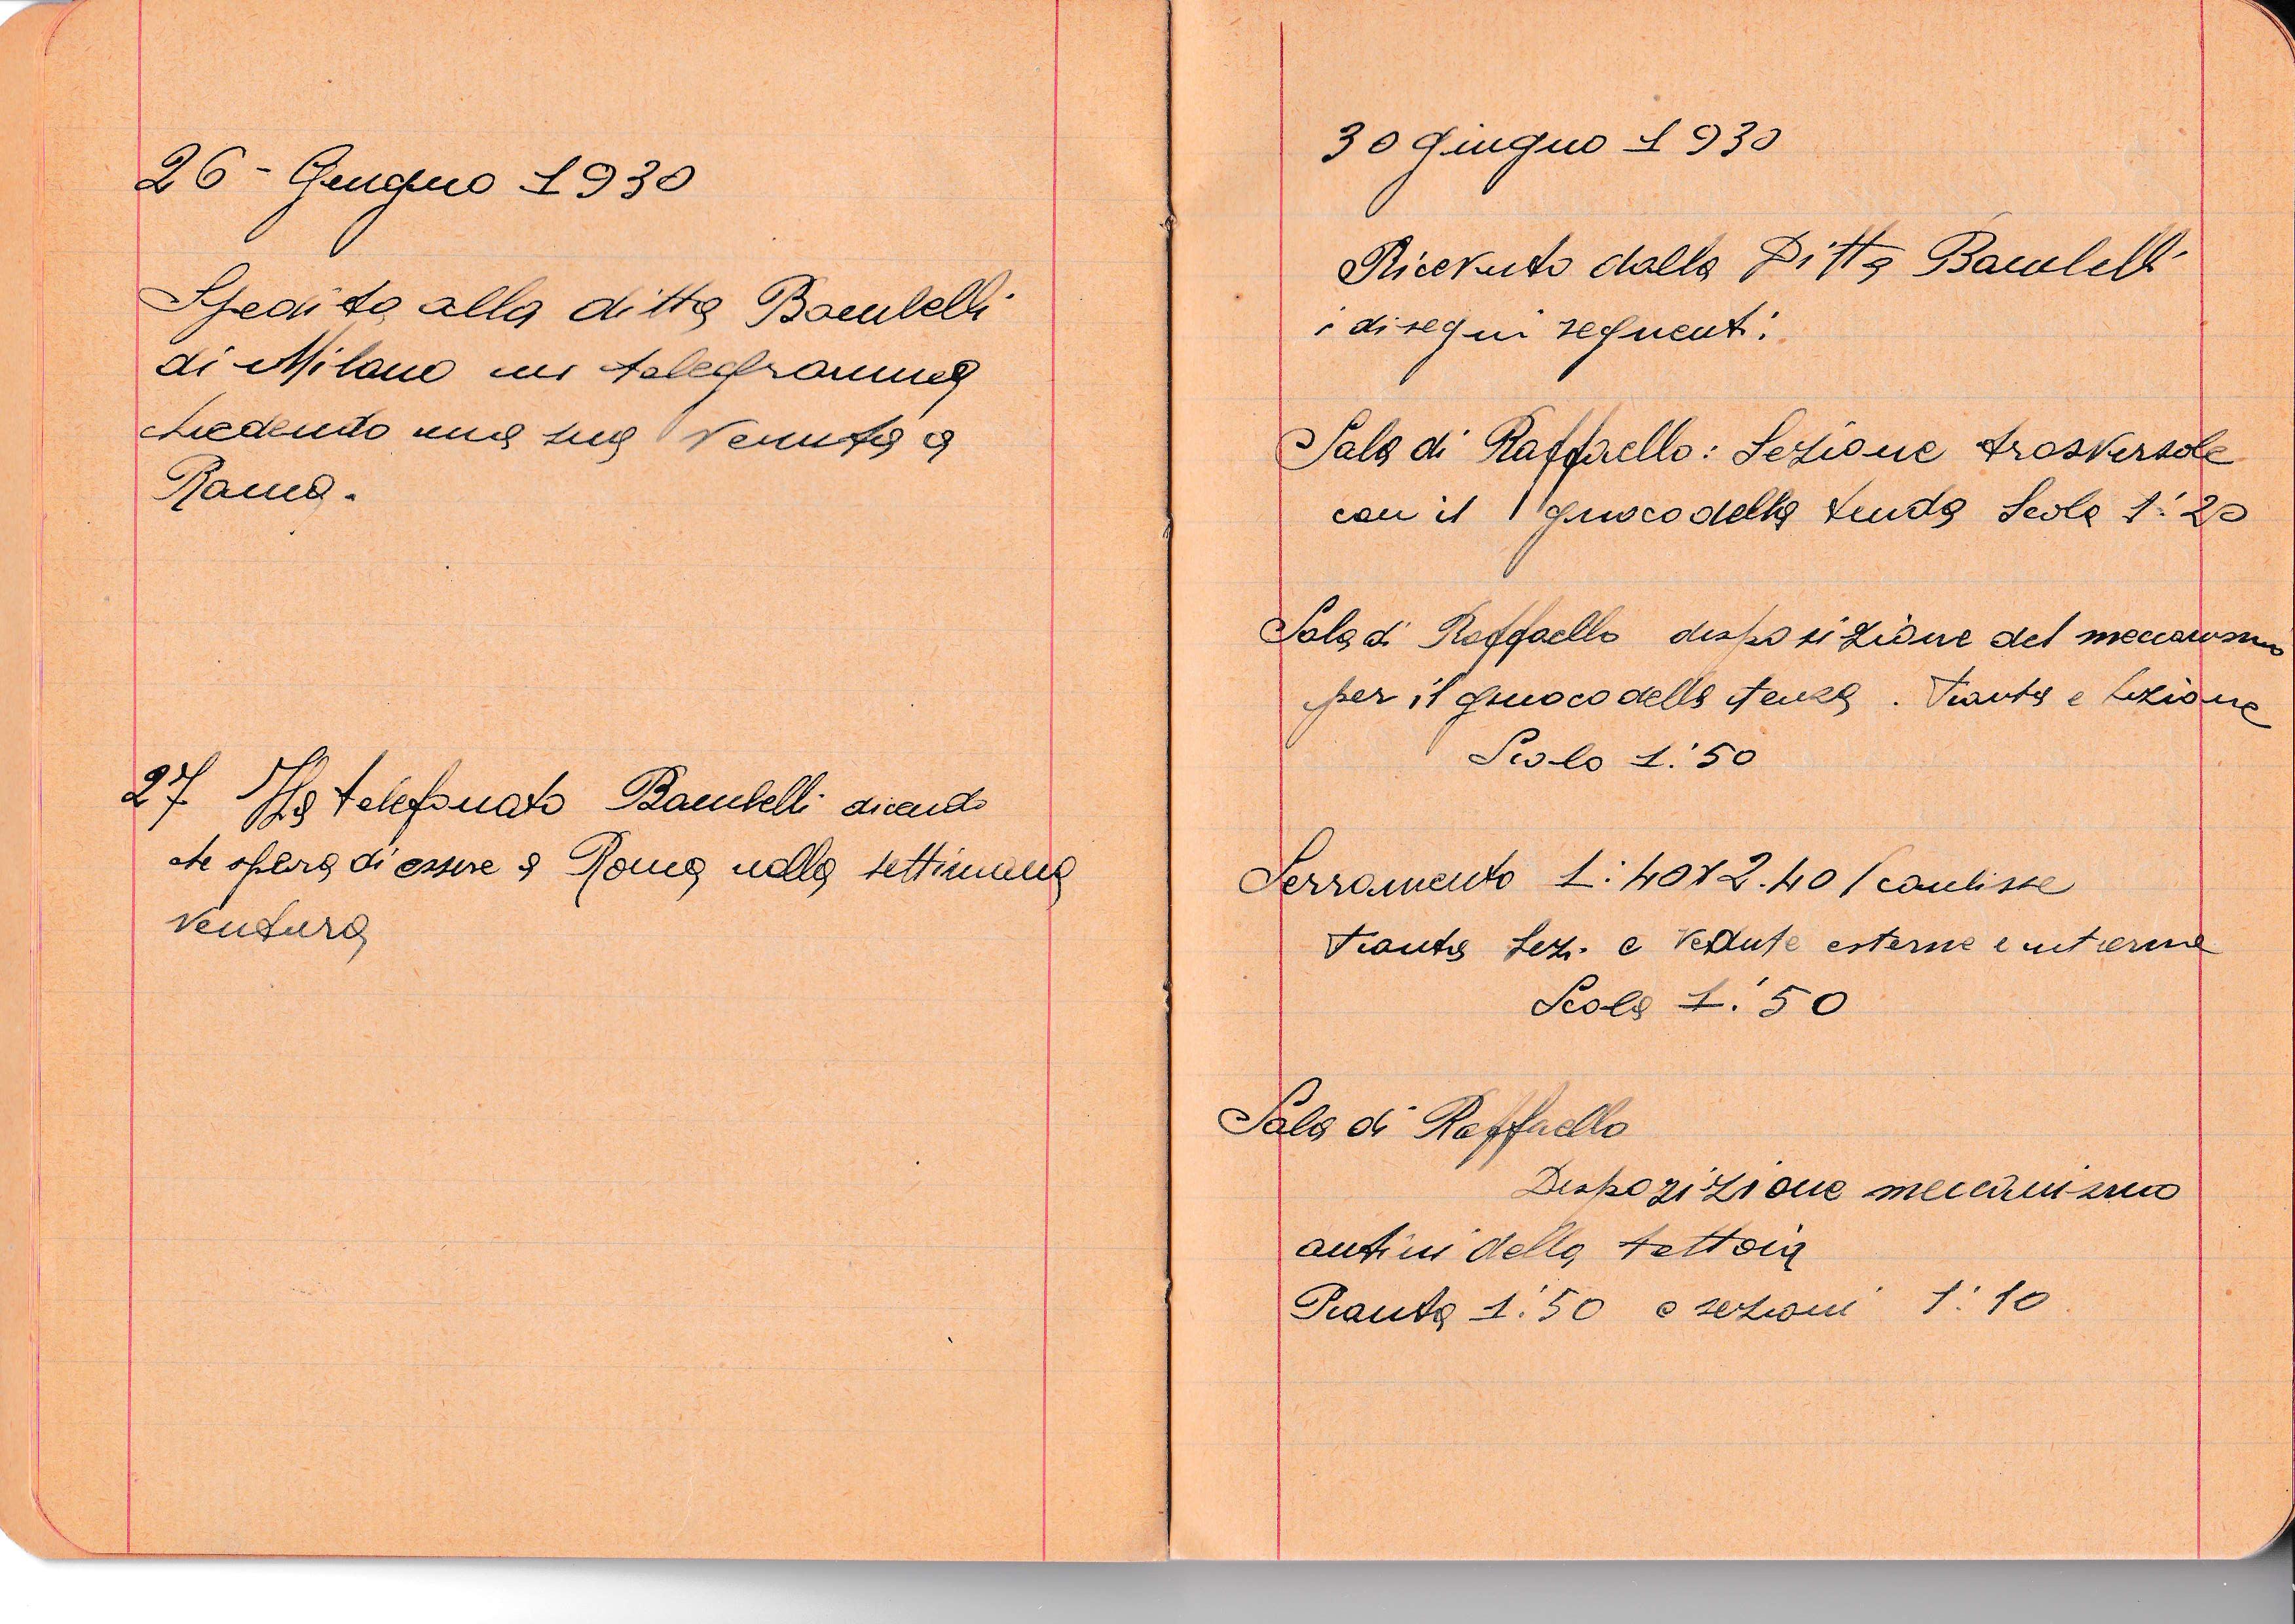 26 - Giugno 1930
Spedito alla ditta Bombelli
di Milano un telegramma
chiedendo una sua venuta a
Roma.
27 Ha telefonato Bombelli dicendo
che spera di essere a Roma nella settimana
ventura
30 Giugno 1930
Ricevuto dalla Ditta Bombelli
i disegni seguenti:
Sala di Raffaello: Sezione trasversale
con il giuoco della tenda Scala 1:20
Sala di Raffaello disposizione del meccanismo
per il giuoco della tenda. Pianta e sezione
Scala 1:50
Serramento 1:40 x 2.40 / coulisse
Pianta Sez. e vedute esterne e interne
Scala 1:50
Sala di Raffaello
Disposizione meccanismo
antini della tettoia
Pianta 1:50 e sezioni 1:10